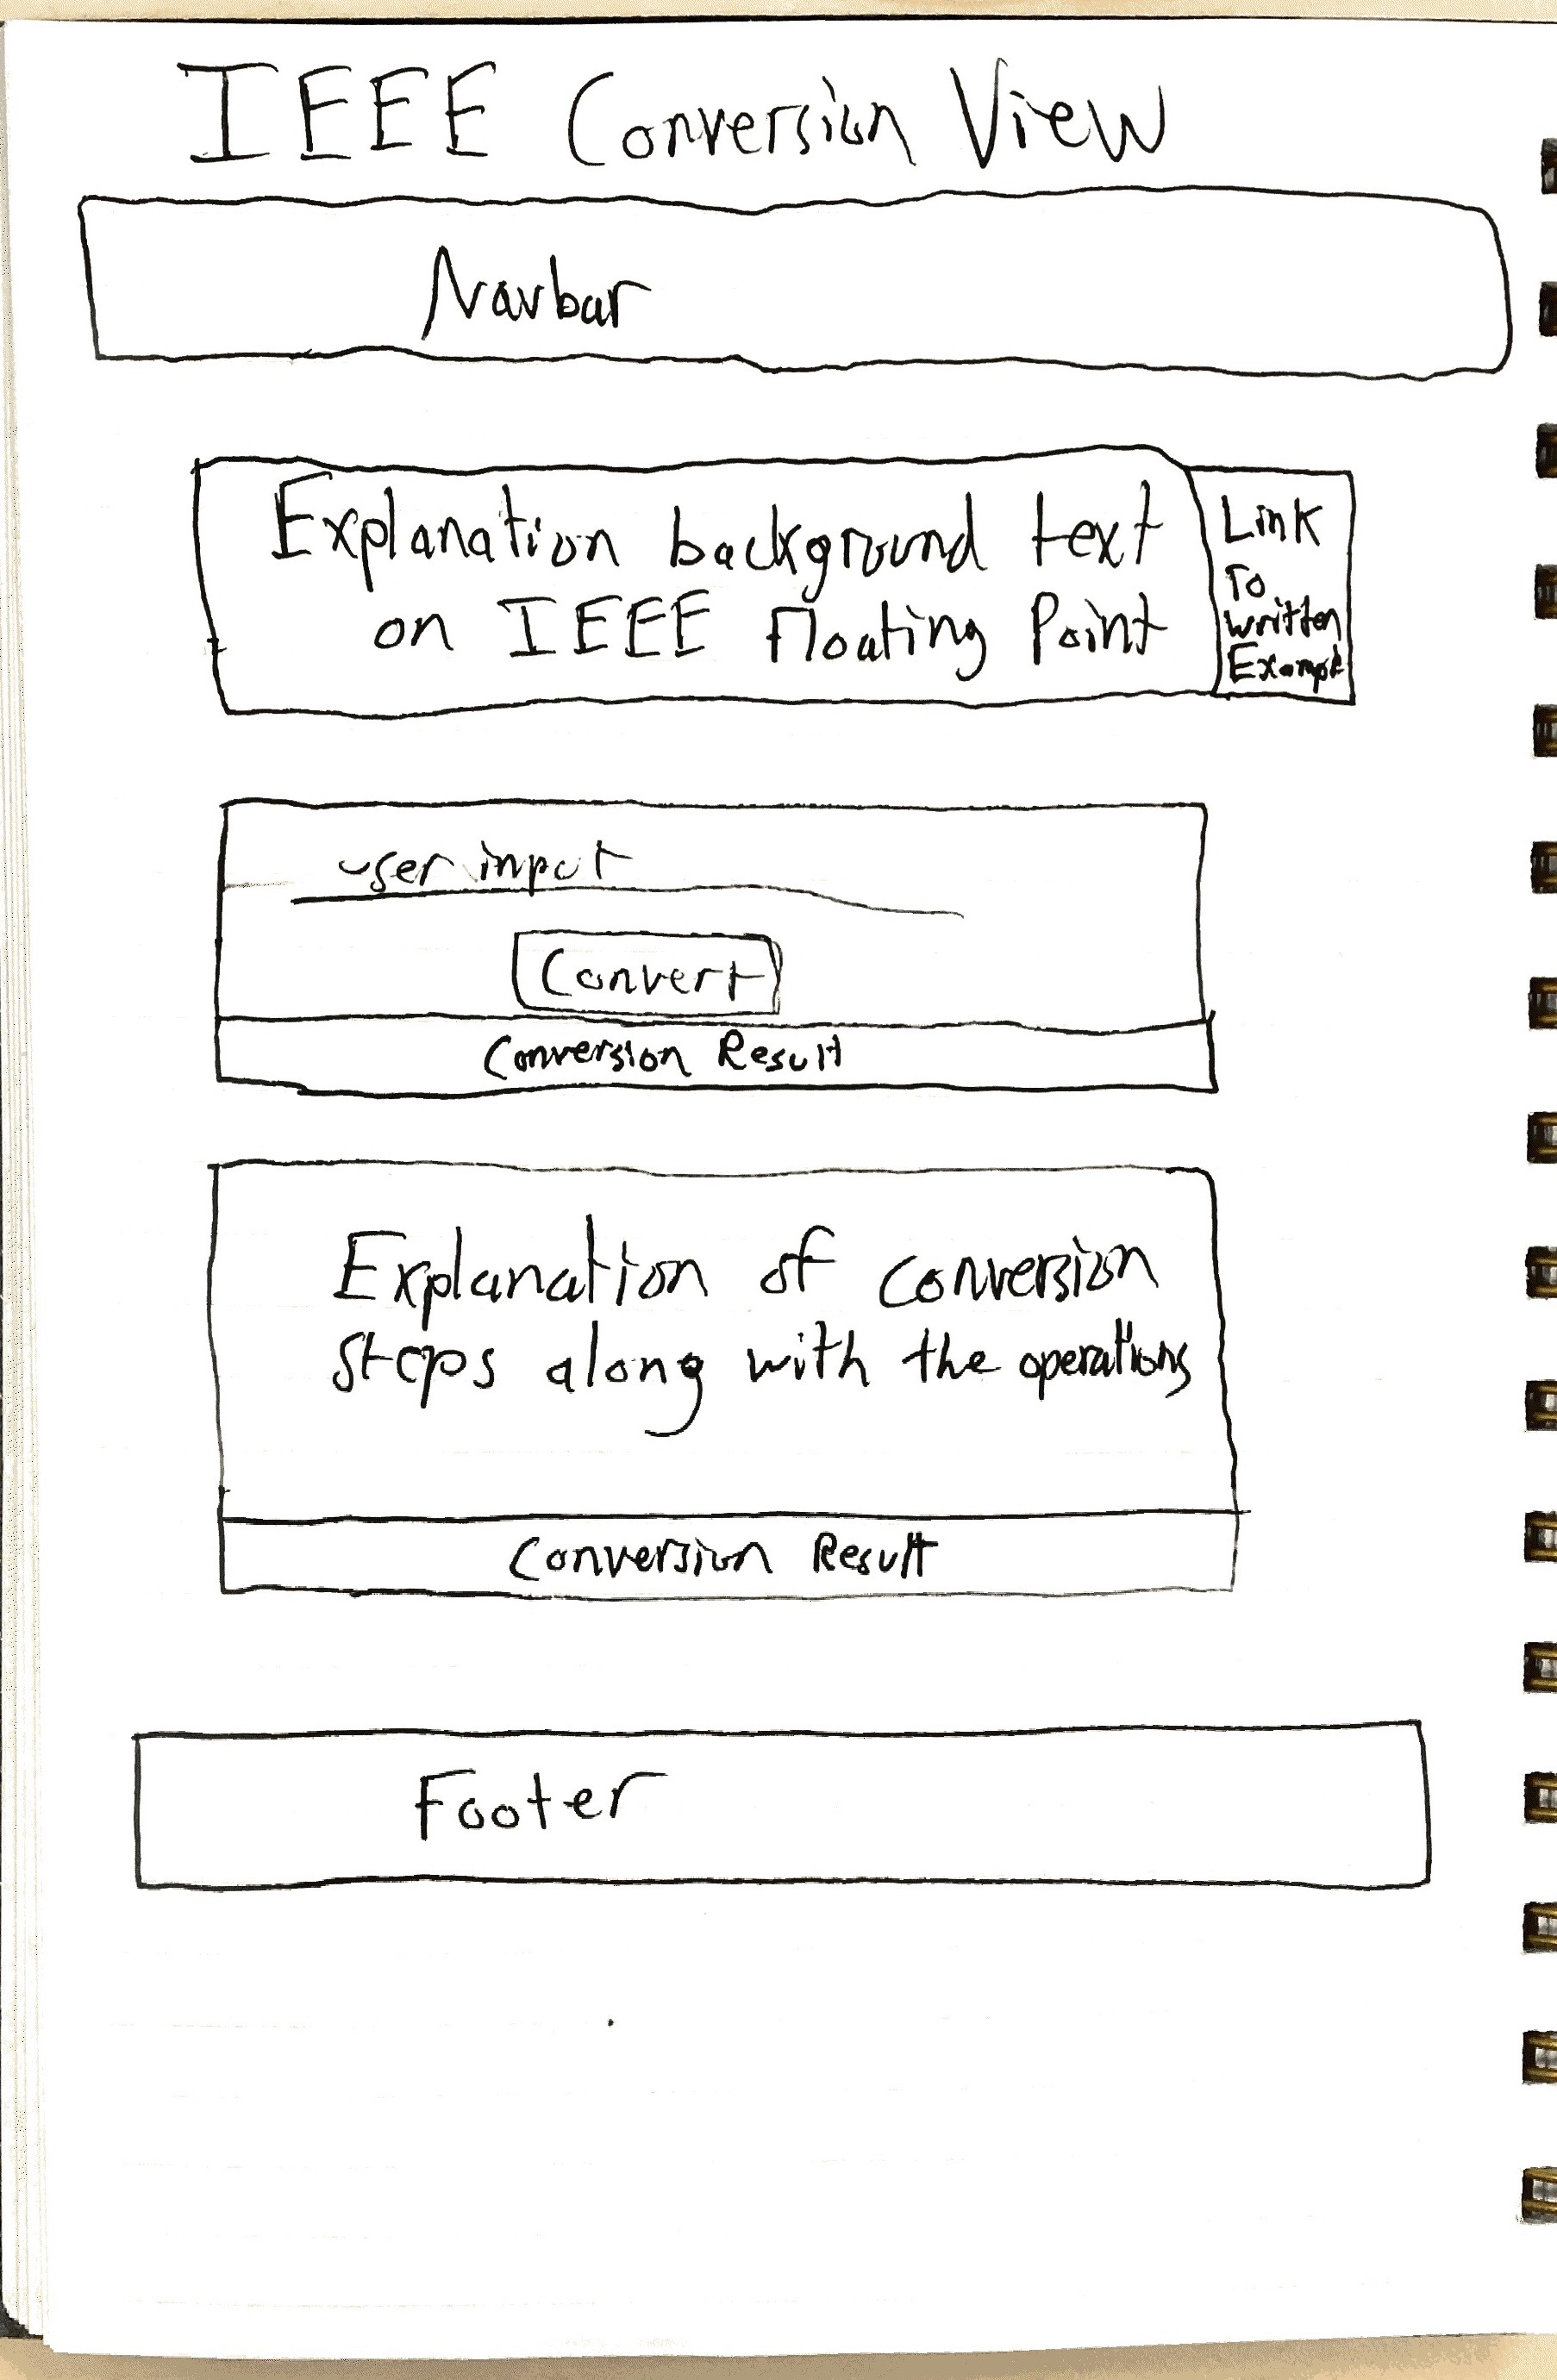 IEEE Conversion View
Navbar
Explanation background text
on IEEE Floating Point
Link
To
written
Example
user input
Convert
Conversion Result
Explanation of conversion
steps along with the operations
Conversion Result
Footer